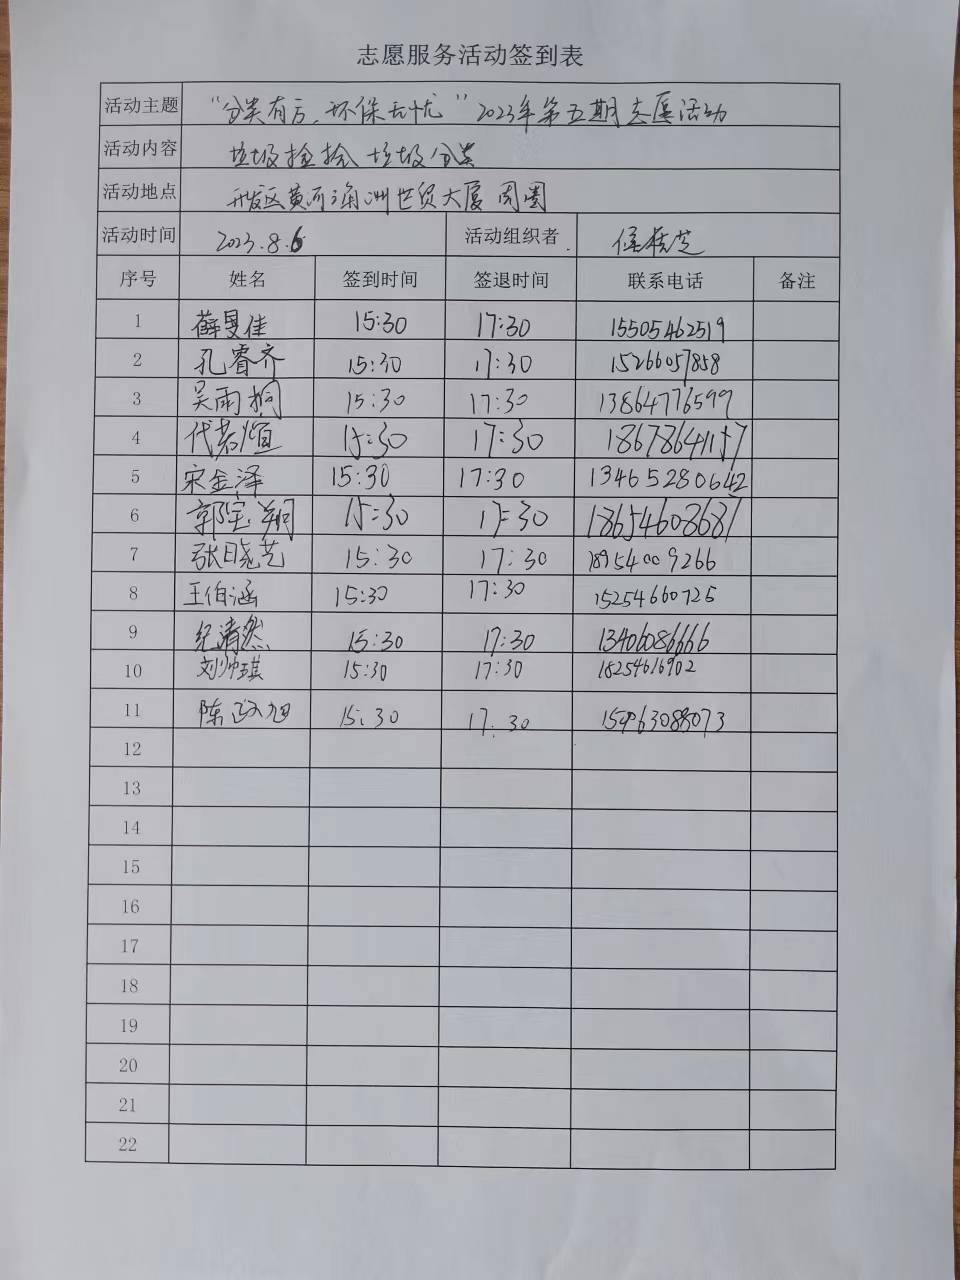 志愿服务活动签到表
活动主题 “分类有方，环保无忧”2023年第五期志愿活动
活动内容 垃圾捡拾 垃圾分类
活动地点 开发区黄河 洲世贸大厦周围
活动时间 2023.8.6 活动组织者 侯桂芝
序号 姓名 签到时间 签退时间 联系电话 备注
1 薛旻佳 15:30 17:30 15505462519
2 孔睿齐 15:30 17:30 15266057858
3 吴雨桐 15:30 17:30 13864776599
4 代若煊 15:30 17:30 18678641157
5 宋金泽 15:30 17:30 13465280642
6 郭宝翔 15:30 17:30 18654608687
7 张晓艺 15:30 17:30 18954009266
8 王伯涵 15:30 17:30 15254660725
9 纪清然 15:30 17:30 13406086666
10 刘帅琪 15:30 17:30 18254616902
11 陈政旭 15:30 17:30
12
13
14
15
16
17
18
19
20
21
22